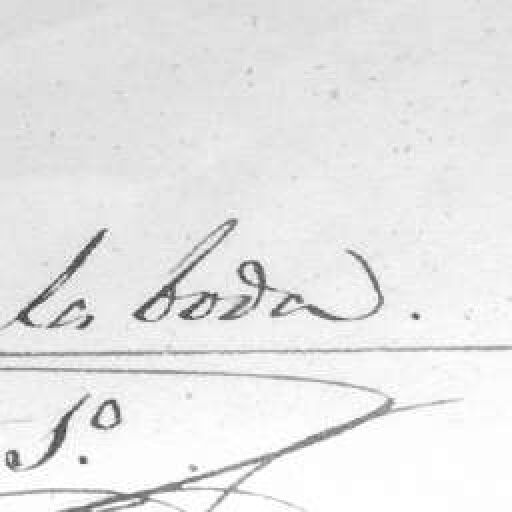 la boda.
1.º